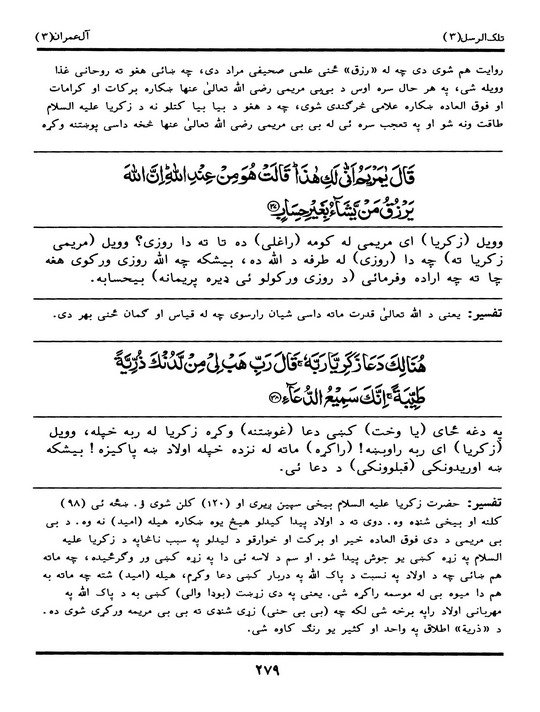 تلك الرسل (٣) آل عمران (٣)
روايت هم شوی دی چه له «رزق» څخنی علمی صحيفی مراد دی، چه ښائی هغو ته روحانی غذا
وويله شی، په هر حال سره اوس د بی‌بی مريمی رضی الله تعالیٰ عنها ښکاره برکات او کرامات
او فوق العاده ښکاره علامی څرگندی شوی، چه د هغو د بيا بيا کتلو نه د زکريا عليه السلام
طاقت ونه شو او په تعجب سره ئی له بی بی مريمی رضی الله تعالیٰ عنها څخه داسی پوښتنه وکړه
قَالَ يٰمَرْيَمُ اَنّٰى لَكِ هٰذَا ؕ قَالَتْ هُوَ مِنْ عِنْدِ اللّٰهِ ؕ اِنَّ اللّٰهَ
يَرْزُقُ مَنْ يَّشَآءُ بِغَيْرِ حِسَابٍ ﴿٣٧﴾
وويل (زکريا) ای مريمی له کومه (راغلی) ده تا ته دا روزی؟ وويل (مريمی
زکريا ته) چه دا (روزی) له طرفه د الله ده، بيشکه چه الله روزی ورکوی هغه
چا ته چه اراده وفرمائی (د روزی ورکولو ئی ډيره پريمانه) بيحسابه.
تفسير: يعنی د الله تعالیٰ قدرت ماته داسی شيان رارسوی چه له قياس او گمان څخنی بهر دی.
هُنَالِكَ دَعَا زَكَرِيَّا رَبَّهٗ ۚ قَالَ رَبِّ هَبْ لِىْ مِنْ لَّدُنْكَ ذُرِّيَّةً
طَيِّبَةً ۚ اِنَّكَ سَمِيْعُ الدُّعَآءِ ﴿٣٨﴾
په دغه ځای (يا وخت) کښی دعا (غوښتنه) وکړه زکريا له ربه خپله، وويل
(زکريا) ای ربه راوبښه! (راکړه) ماته له نزده خپله اولاد ښه پاکيزه! بيشکه
ښه اوريدونکی (قبلوونکی) د دعا ئی.
تفسير: حضرت زکريا عليه السلام بيخی سپين ږيری او (١٢٠) کلن شوی ؤ. ښځه ئی (٩٨)
کلنه او بيخی شنډه وه. دوی ته د اولاد پيدا کيدلو هيڅ يوه ښکاره هيله (اميد) نه وه. د بی
بی مريمی د دی فوق العاده خير او برکت او خوارقو د ليدلو په سبب ناڅاپه د زکريا عليه
السلام په زړه کښی يو جوش پيدا شو. او سم د لاسه ئی دا په زړه کښی ور وگرځيده، چه ماته
هم ښائی چه د اولاد په نسبت د پاک الله په دربار کښی دعا وکړم، هيله (اميد) شته چه ماته به
هم دا ميوه بی له موسمه راکړه شی. يعنی په دی زړښت (بوډا والی) کښی به د پاک الله په
مهربانی اولاد راپه برخه شی لکه چه (بی بی حنی) زړی شنډی ته بی بی مريمه ورکړی شوی ده.
د «ذرية» اطلاق په واحد او کثير يو رنگ کاوه شی.
٢٧٩